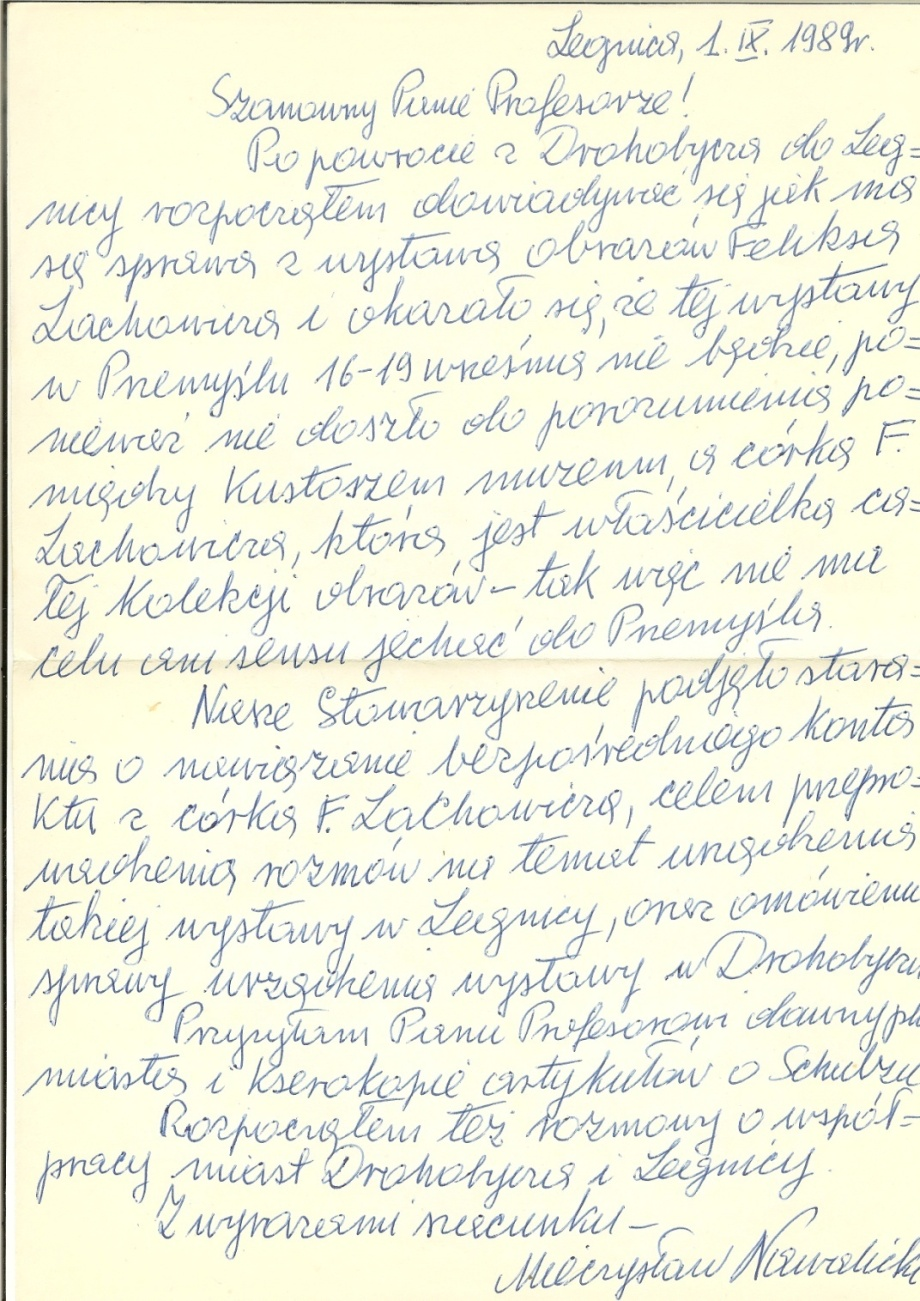 Legnica, 1. IX. 1989r.
Szanowny Panie Profesorze!
Po powrocie z Drohobycza do Leg=
nicy rozpocząłem dowiadywać się jak ma
się sprawa z wystawą obrazów Feliksa
Lachowicza i okazało się, że tej wystawy
w Przemyślu 16-19 września nie będzie, po=
nieważ nie doszło do porozumienia po=
między Kustoszem muzeum, a córką F.
Lachowicza, która jest właścicielką ca=
łej Kolekcji obrazów – tak więc nie ma
celu ani sensu jechać do Przemyśla.
Nasze Stowarzyszenie podjęło stara=
nia o nawiązanie bezpośredniego Konta
Ktu z córką F. Lachowicza, celem przepro=
wadzenia rozmów na temat urządzenia
takiej wystawy w Legnicy, oraz omówienia
sprawy urządzenia wystawy w Drohobyczu
Przysyłam Panu Profesorowi dawny pl
miasta i Kserokopie artykułów o Schulzu
Rozpocząłem też rozmowy o współ=
pracy miast Drohobycza i Legnicy.
Z wyrazami szacunku –
Mieczysław